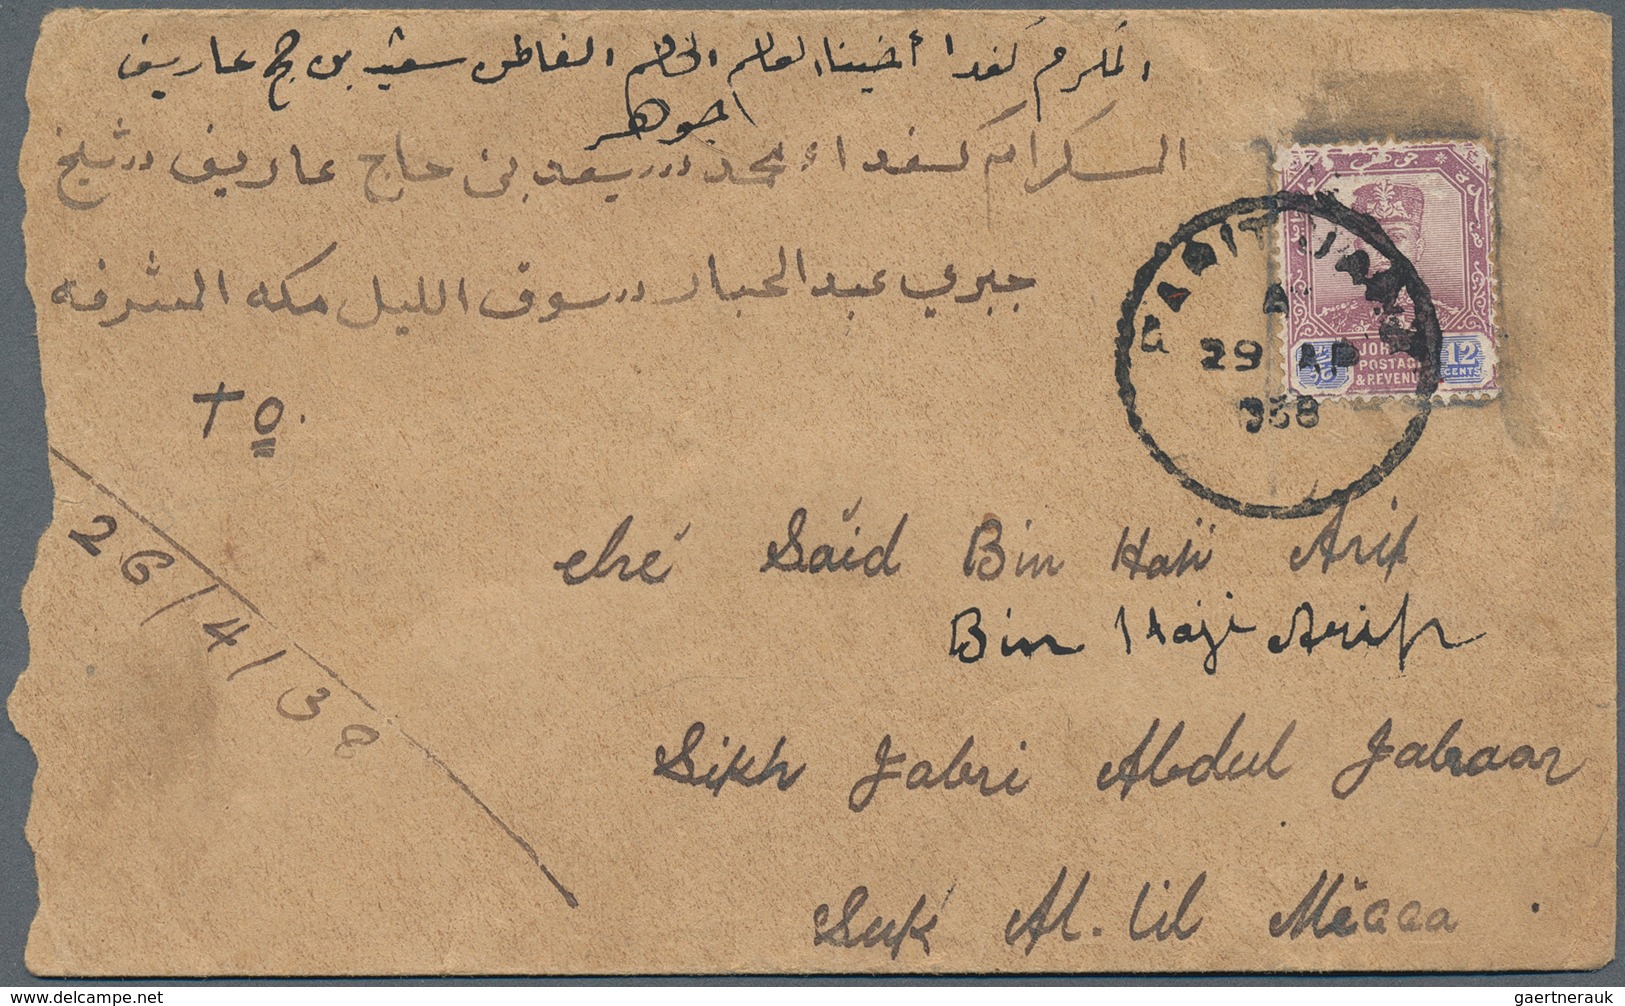 المكرم كفدا أخينا العالم الفاطن سعيد بن حج عاريف
الجوهر
المكرام كفداء محمد سعيد بن حاج عاريف شيخ
جبري عبد الجبار سوق الليل مكه المشرفه
To.
26/4/38
PARIT JAWA
A
29 AP
938
JOHORE
POSTAGE
& REVENUE
12
CENTS
ché Saïd Bin Haji Arif
Bin Haji Ariff
Sikh Jabri Abdul Jabaar
Suk Al. lil Mecca.
www.delcampe.net
gaertnerauk